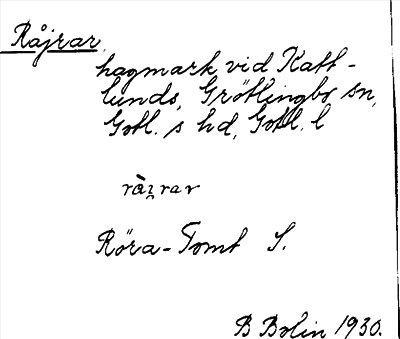 Råjrar,
hagmark vid Katt-
lunds, Grötlingbo sn,
Gotl. s hd, Gotl. l
rài̯rar
Röra-Tomt S.
B Bolin 1930.